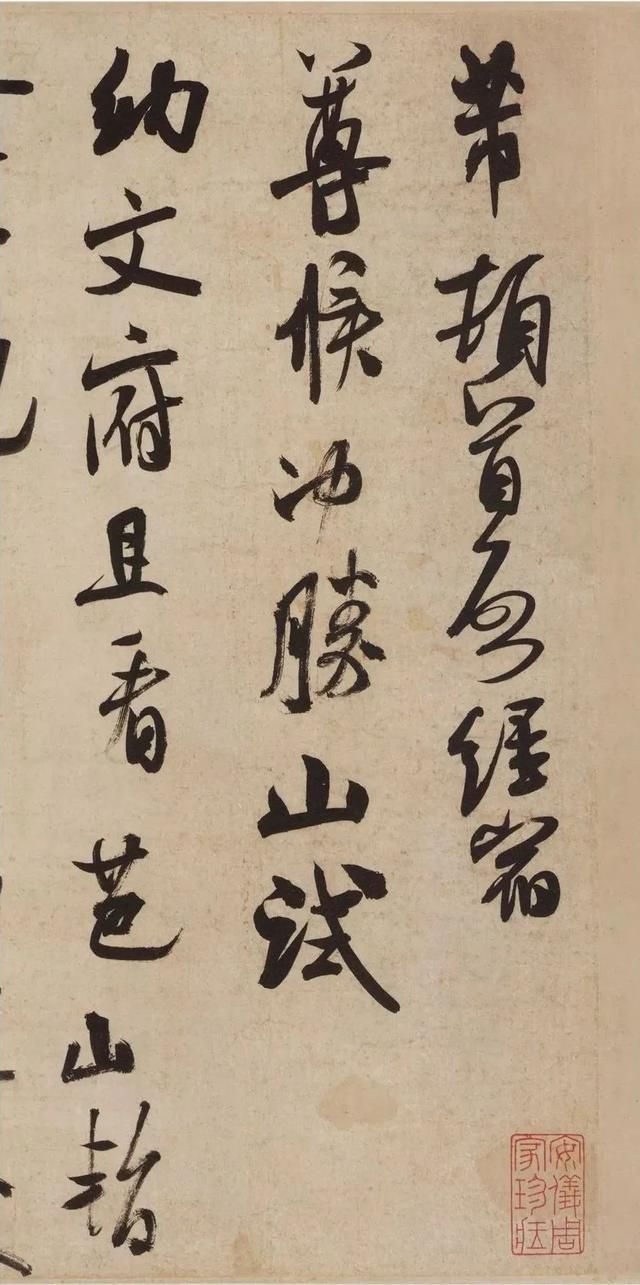 芾頓首啓經宿
尊候冲勝山試
納文府且看芭山暫
安儀周
家珍藏